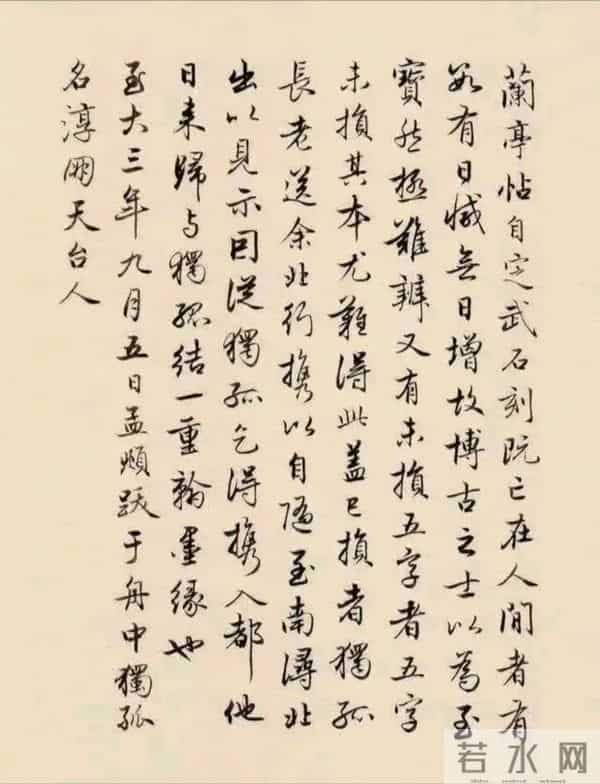 蘭亭帖自定武石刻既亡在人間者有
數有日減無日增故博古之士以為至
寶然極難辨又有未損五字者五字
未損其本尤難得此蓋已損者獨孤
長老送余北行攜以自隨至南潯北
出以見示因從獨孤乞得攜入都他
日來歸与獨孤結一重翰墨緣也
至大三年九月五日孟頫跋于舟中獨孤
名淳朋天台人
若水网